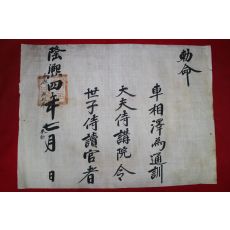 勅命
車相澤為通訓
大夫侍講院令
世子侍讀官者
隆熙四年七月 日